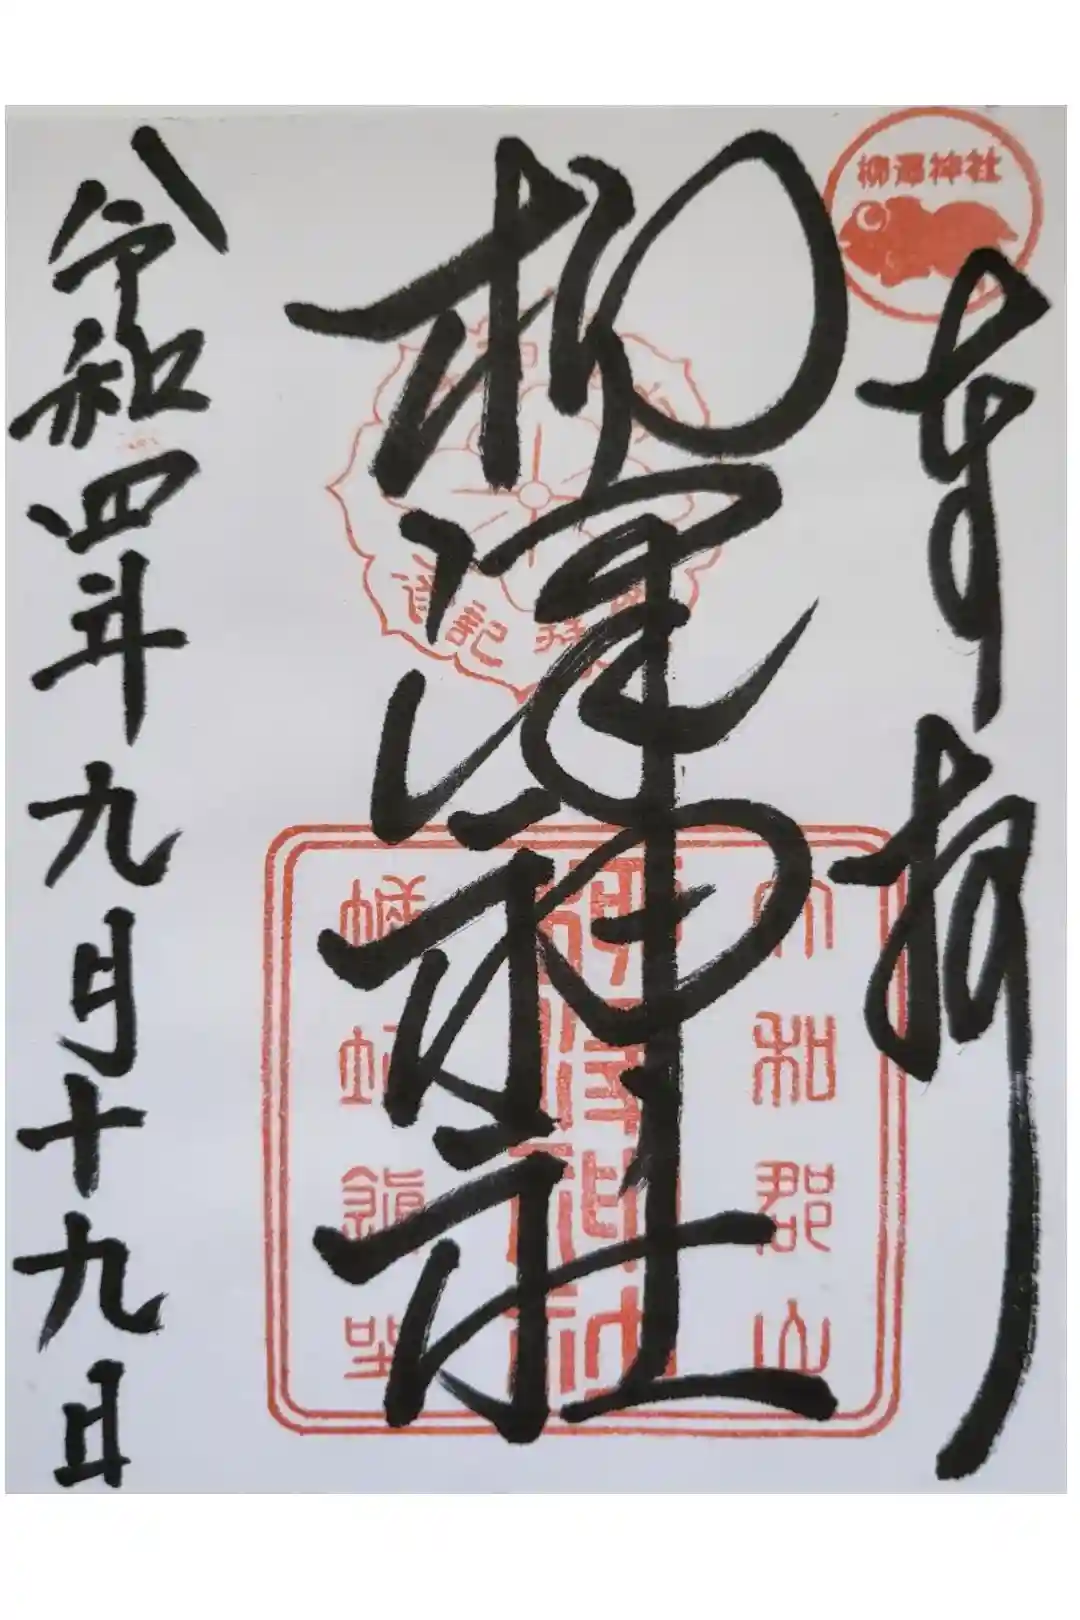 奉拝
柳澤神社
柳澤神社
大和郡山
柳澤神社
蟠蛇鎮坐
令和四年九月十九日